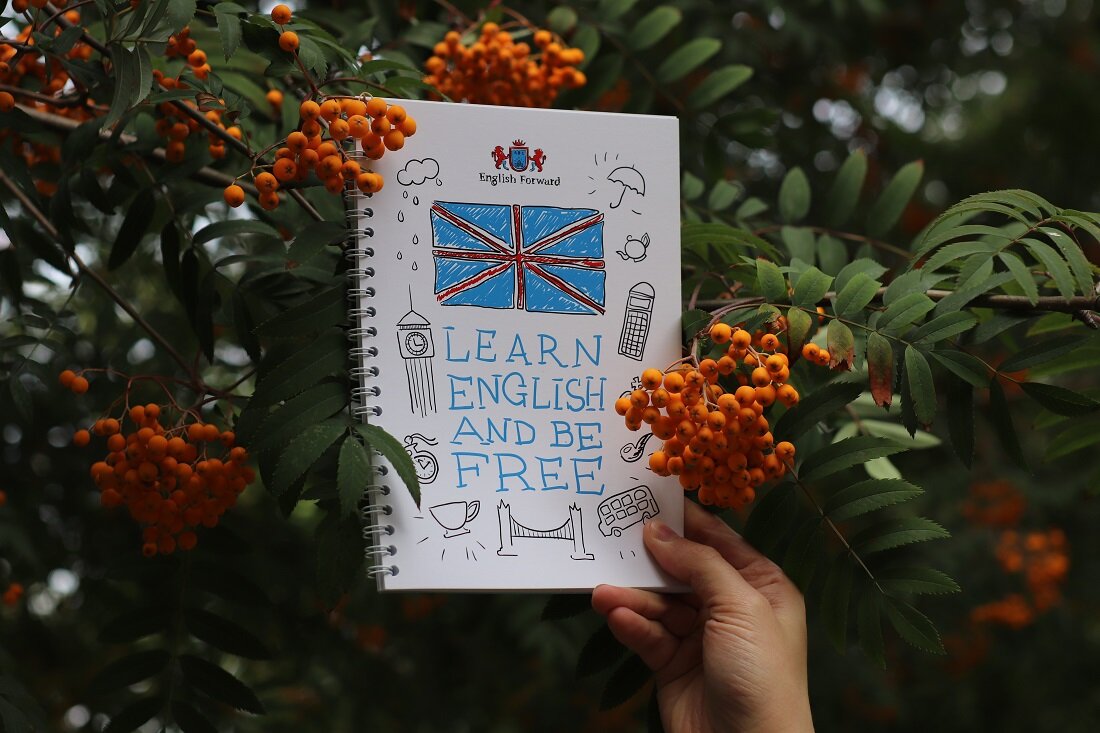 English Forward
LEARN
ENGLISH
AND BE
FREE